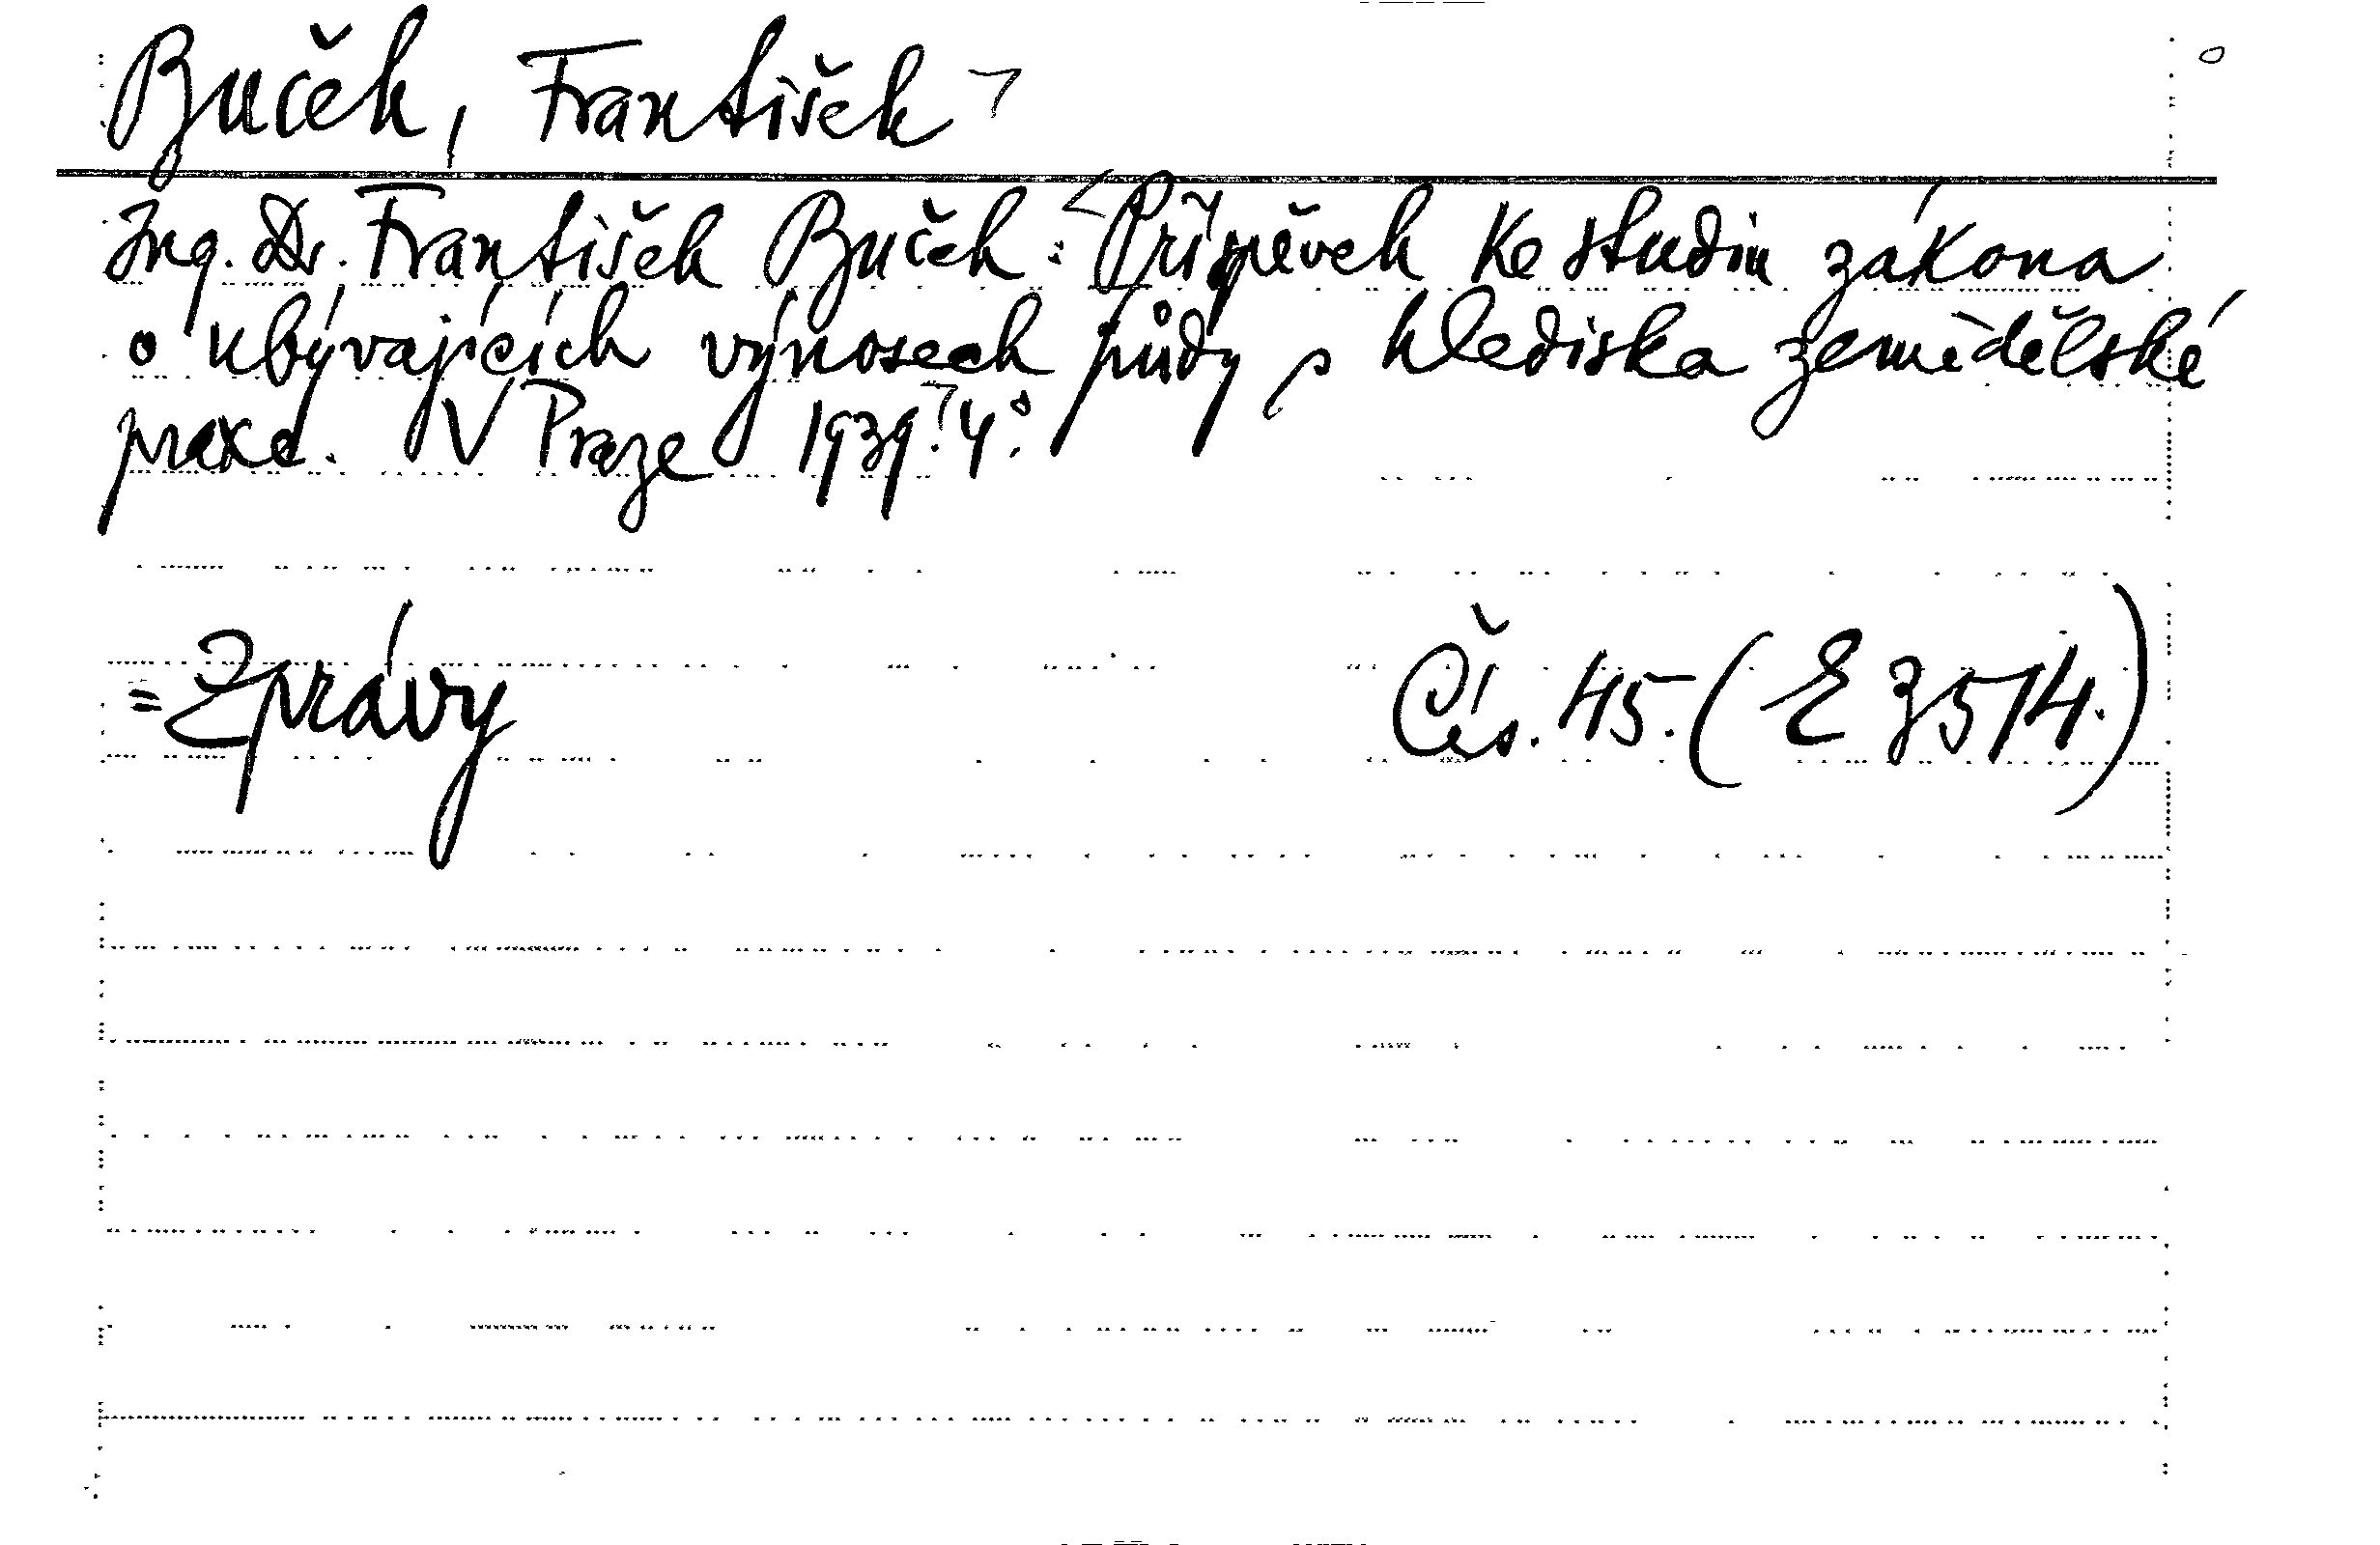 Buček, František
Ing. Dr. František Buček: Příspěvek ke studiu zákona
o ubývajících výnosech půdy s hlediska zemědělské
praxe. V Praze 1939. 4°.
= Zprávy Čís. 45. (E 3514.)